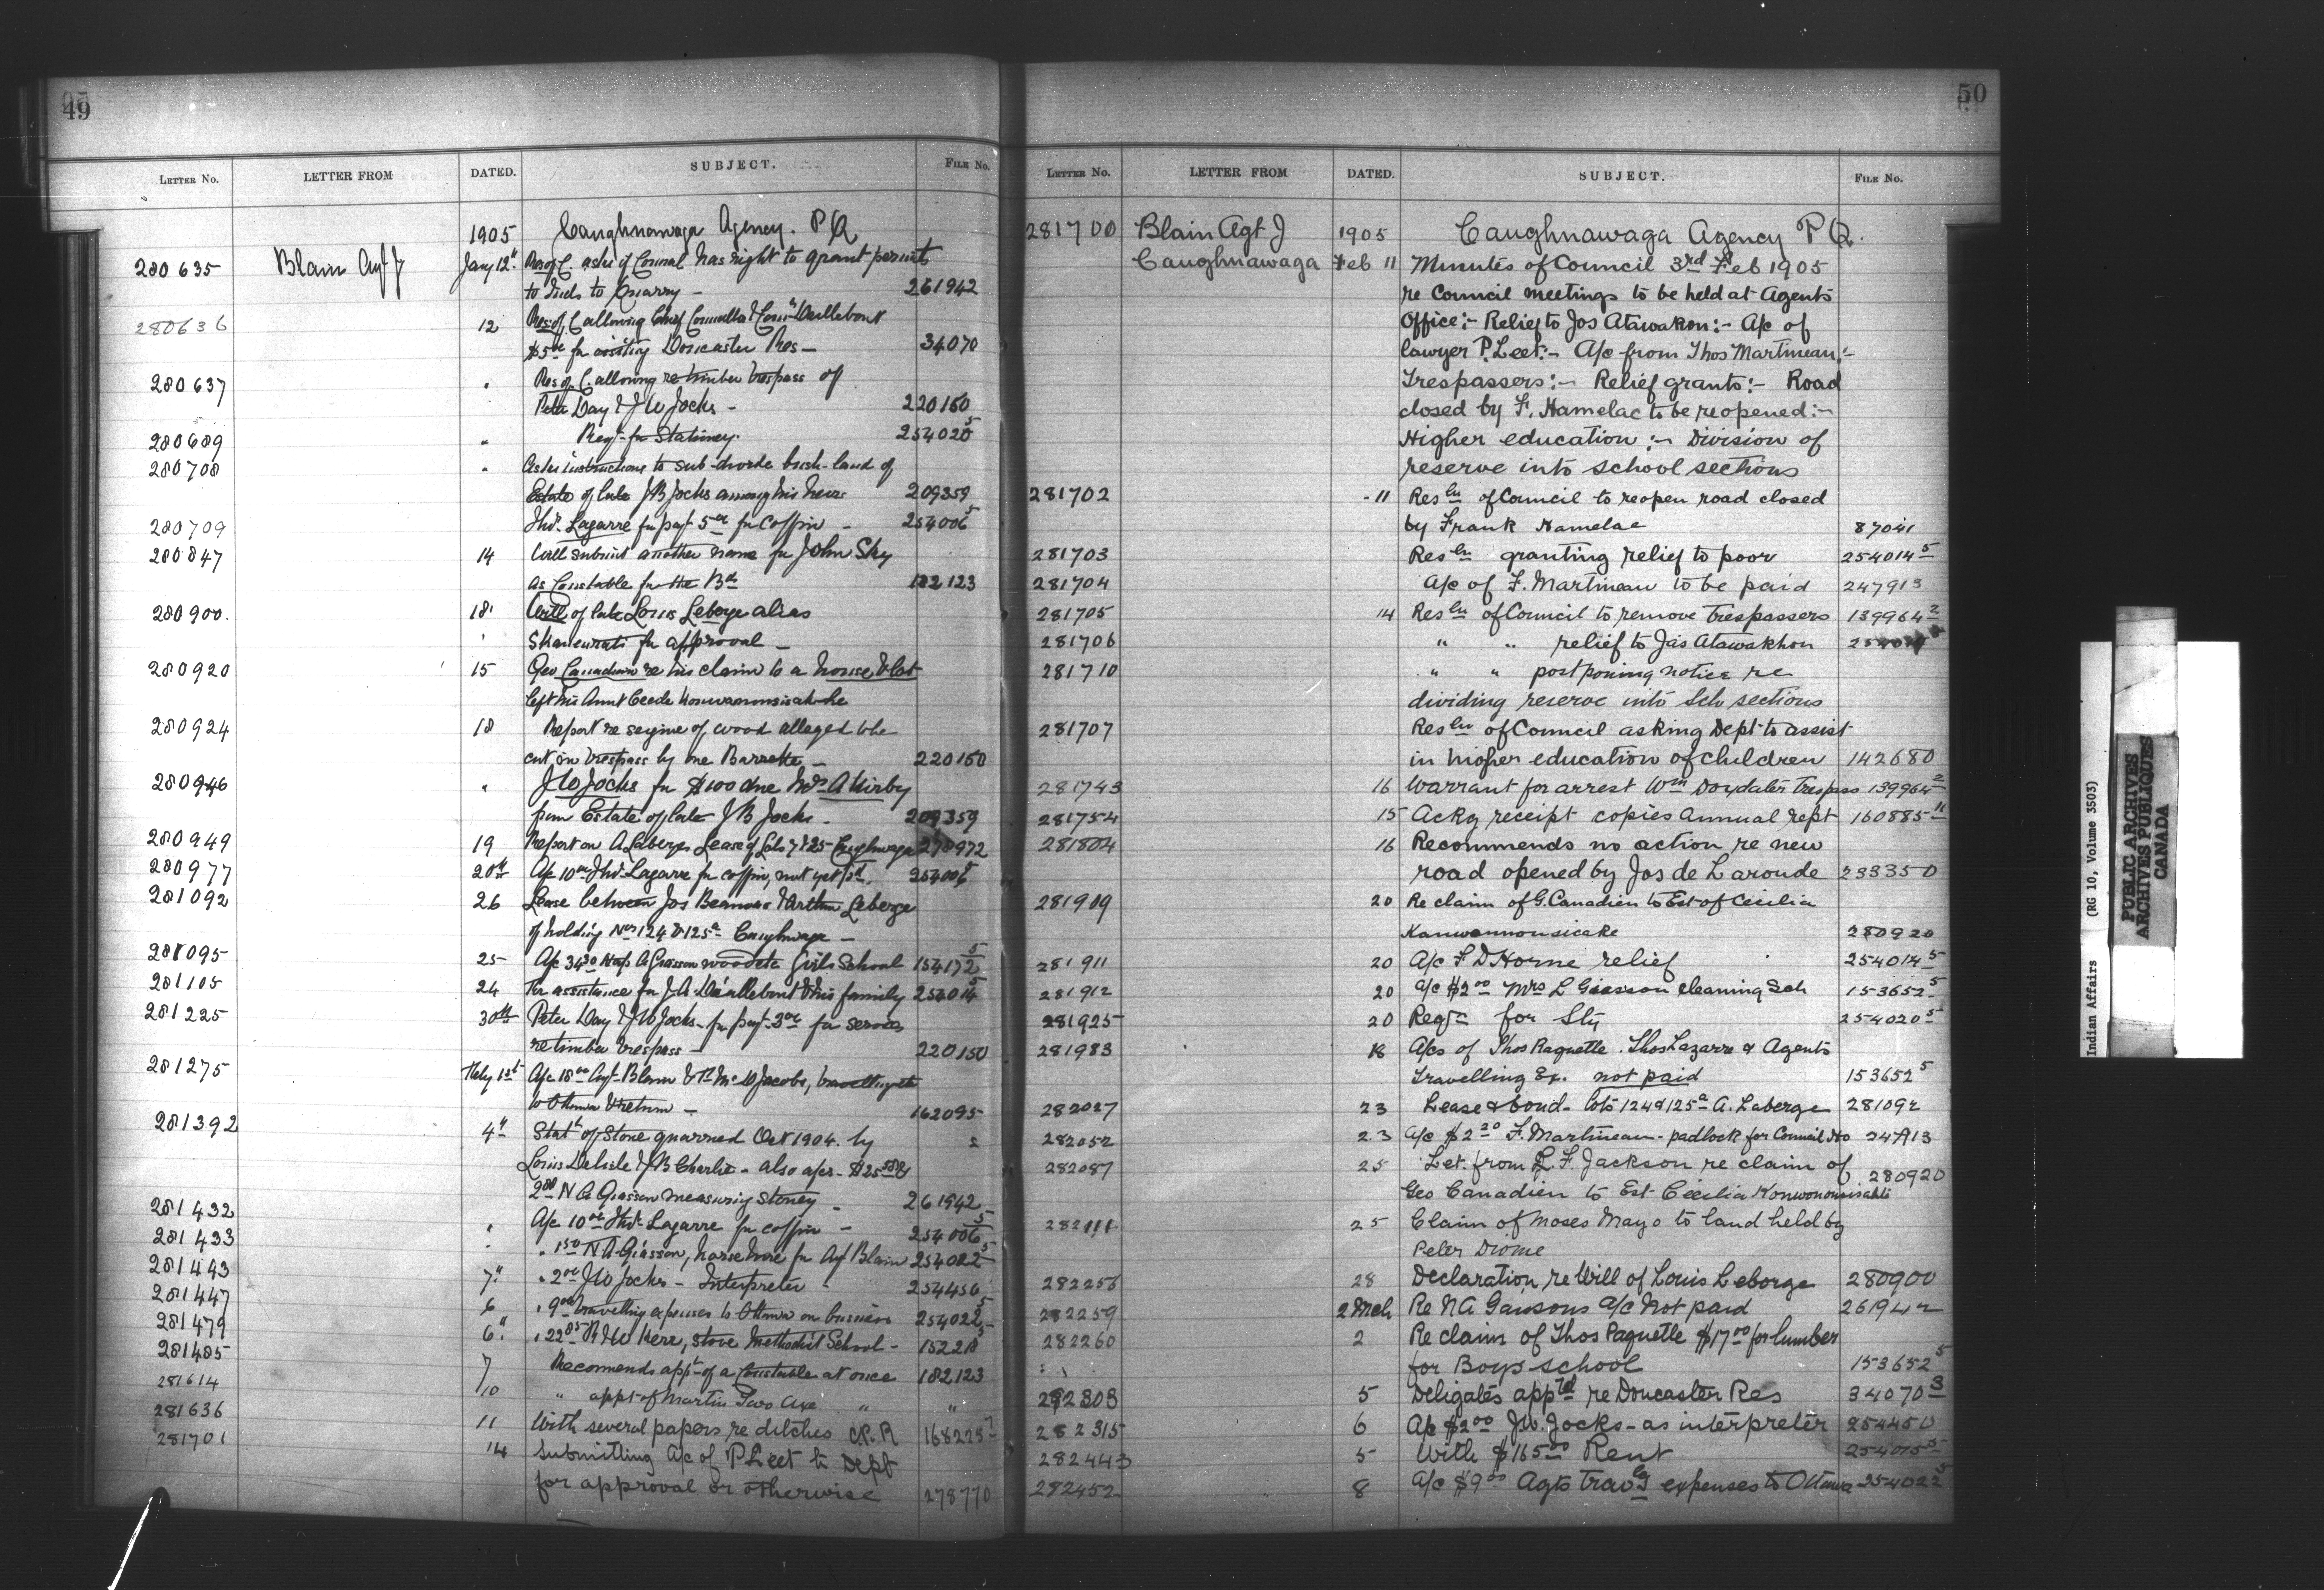 49
LETTER NO. LETTER FROM DATED. SUBJECT. FILE NO.
1905 Caughnawaga Agency. P Q
280635 Blain Agt J Jany 12" Res of C. asks if Council has right to grant permits
to Inds to Quarry — 261942
280636 12 Res of C allowing Chief Councillor & Coun Daillebout
$5 00 for visiting Doncaster Res — 34070
280637 " Res of C. allowing re timber trespass of
Peter Day & J W Jocks — 220150
280689 " Reqn for Stationery. 254020 5
280708 " Asks instructions to sub-divide bush-land of
Estate of late J B Jocks among his heirs 209359
280709 Thos. Lazarre for payt 5 00 for Coffin — 254006 5
280847 14 Will submit another name for John Sky
as Constable for the Bd 182123
280900. 18 Will of late Louis Leborge alias
" for approval —
280920 15 Geo Canadien re his claim to a house & lot
left his Aunt Cecile
280924 18 Report re seizure of wood alleged to be
cut in trespass by one Barrette — 220150
280946 " J W Jocks for $100 due Mrs A Kirby
from Estate of late J B Jocks. 209359
280949 19 Report on A Laberges Lease of Lots
280977 20th A/c 10 00 Thos. Lazarre for coffin, not yet pd. 254006 5
281092 26 Lease between Jos & Arthur Leberge
of holding Nos 124 & 125a Caughnaga —
281095 25 A/c 34 30 A Giasson wood etc Girls School 154172 5
281105 24 For assistance for J. A. Daillebout & his family 254014 5
281225 30th Peter Day & J W Jocks — for payt 3 00 for services
re timber trespass — 220150
281275 Feby 1st A/c 18 00 Agt Blain & Jacobs, travelling etc
to Ottawa & return — 162095
281392 4" Statt of Stone quarried Oct 1904. by 2
Louis Delisle & J B Charlie — also a/cs — $25
2 00 N A Giasson measuring stoney — 261942
281432 " A/c 10 00 Thos. Lazarre for coffin — 254006 5
281433 " " 1 50 N A Giasson, horse hire for Agt Blain 254022 5
281443 7" " 2 00 J W Jocks — Interpreter — 254450
281447 6 " 9 00 travelling expenses to Ottawa on business 254022 5
281479 6" " 22 85 R W Kerr, stove Methodist School — 15221
281485 7 Recomends appt of a Constable at once 182123
281614 10 " appt of Martin Two Axe " "
281636 11 With several papers re ditches C.P.R 168225
281701 14 Submitting A/c of P Leet to Dept
for approval or otherwise 278770
50
LETTER NO. LETTER FROM DATED. SUBJECT. FILE NO.
281700 Blain Agt J 1905 Caughnawaga Agency P Q.
Caughnawaga Feb 11 Minutes of Council 3rd Feb 1905
re Council meetings to be held at Agents
Office:- Relief to Jos Atawakon:- A/c of
lawyer P. Leet:- A/c from Thos Martineau:-
Trespassers:- Relief grants:- Road
closed by F. Hamelac to be reopened:-
Higher education:- Division of
reserve into school sections
281702 " 11 Resln of Council to reopen road closed
by Frank Hamelac 87041
281703 Resln granting relief to poor 254014 5
281704 A/c of F. Martineau to be paid 247913
281705 14 Resln of Council to remove trespassers 139964 2
281706 " " relief to Jas Atawakhon
281710 " " postponing notice re
dividing reserve into Sch sections
281707 Resln of Council asking Dept to assist
in higher education of children 142680
281743 16 Warrant for arrest Wm Trespass 139964 2
281754 15 Ackg receipt copies Annual rept 160885 11
281804 16 Recommends no action re new
road opened by Jos de Laronde 233350
281909 20 Re claim of G. Canadien to Est of Cecilia
Kanwannonsicake 280920
281911 20 A/c F D Horne relief 254014 5
281912 20 A/c $2 00 Mrs L Giasson cleaning Sch 153652 5
281925 20 Reqn for Sty 254020 5
281983 18 A/cs of Thos Paquette. Thos Lazarre & Agents
Travelling Ex. not paid 153652 5
282027 23 Lease & bond — lots 124 & 125a A. Laberge 281092
282052 23 A/c $2 20 F. Martineau — padlock for Council Ho 247913
282087 25 Let. from L. F. Jackson re claim of
Geo Canadien to Est Cecilia Konwononsisahti 280920
282111 25 Claim of Moses Mayo to land held by
Peter Diome
282256 28 Declaration re Will of Louis Leborge 280900
282259 2 Mch Re N A Gaisons a/c not paid 261942
282260 2 Re claim of Thos Paquette $17 00 for lumber
for Boys school 153652 5
282303 5 Deligates apptd re Doncaster Res 34070 3
282315 6 A/c $2 00 J W. Jocks — as interpreter 254450
282443 5 With $165 00 Rent 254015 5
282452 8 A/c $9 00 Agts travlg expenses to Ottawa 254022 5
Indian Affairs (RG 10, Volume 3503)
PUBLIC ARCHIVES
ARCHIVES PUBLIQUES
CANADA